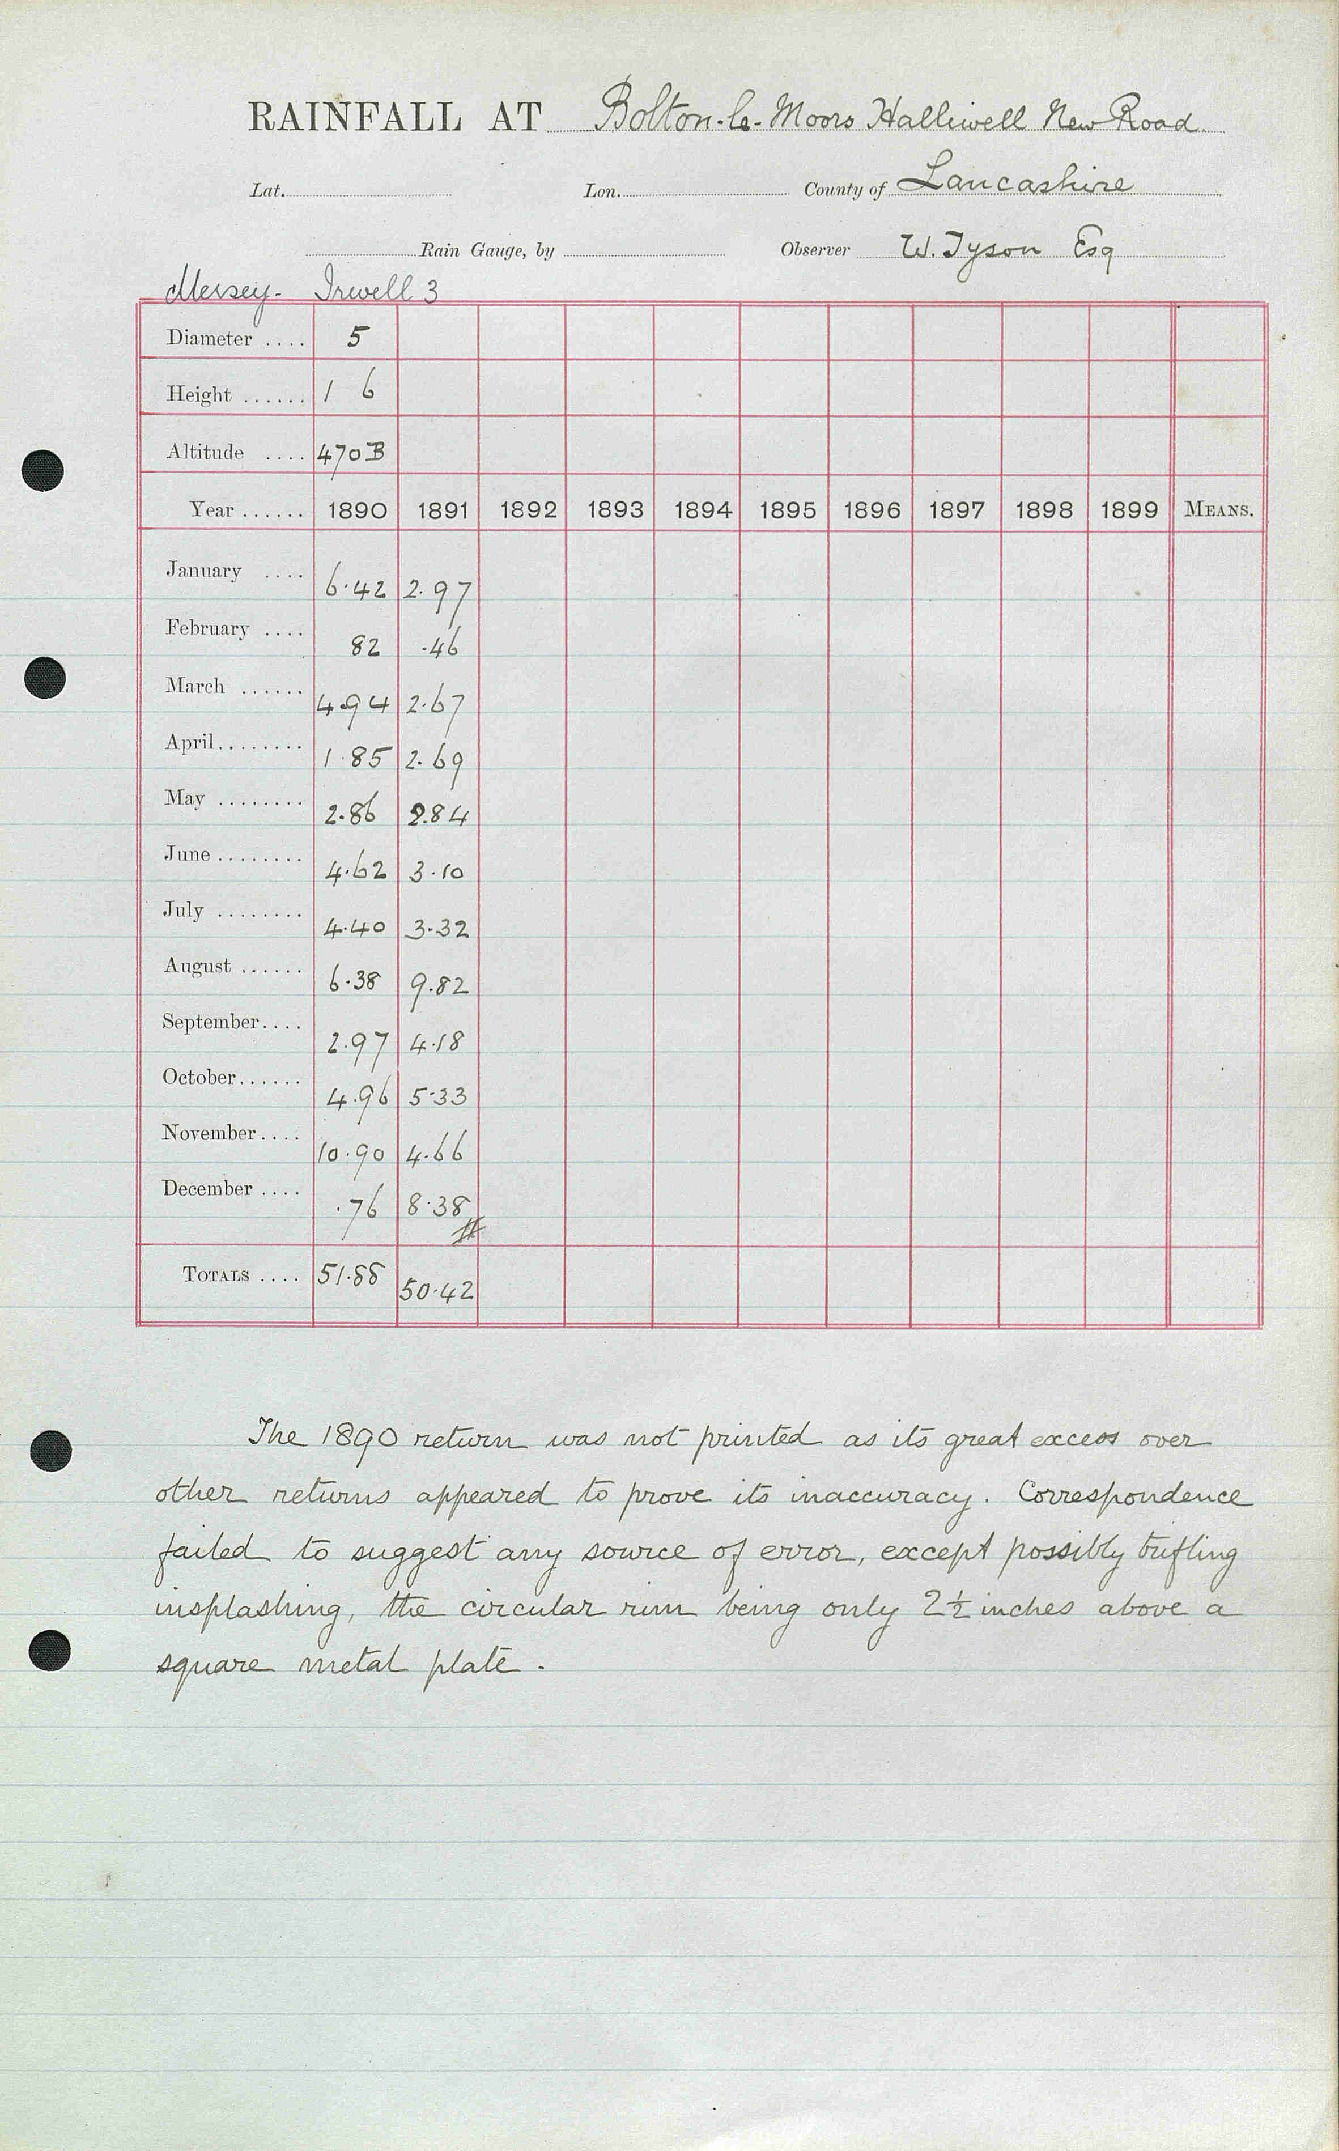 RAINFALL AT Bolton-le-Moors Halliwell New Road
Lat. Lon. County of Lancashire
Rain Gauge, by Observer W. Tyson Esq
Mersey - Irwell 3
Diameter .... 5
Height ...... 1 6
Altitude .... 470 B
Year ...... 1890 1891 1892 1893 1894 1895 1896 1897 1898 1899 MEANS.
January .... 6.42 2.97
February .... 82 .46
March ...... 4.94 2.67
April........ 1.85 2.69
May ........ 2.86 2.84
June ........ 4.62 3.10
July ........ 4.40 3.32
August ...... 6.38 9.82
September.... 2.97 4.18
October...... 4.96 5.33
November.... 10.90 4.66
December .... .76 8.38
TOTALS .... 51.88 50.42
The 1890 return was not printed as its great excess over
other returns appeared to prove its inaccuracy. Correspondence
failed to suggest any source of error, except possibly trifling
insplashing, the circular rim being only 2½ inches above a
square metal plate.